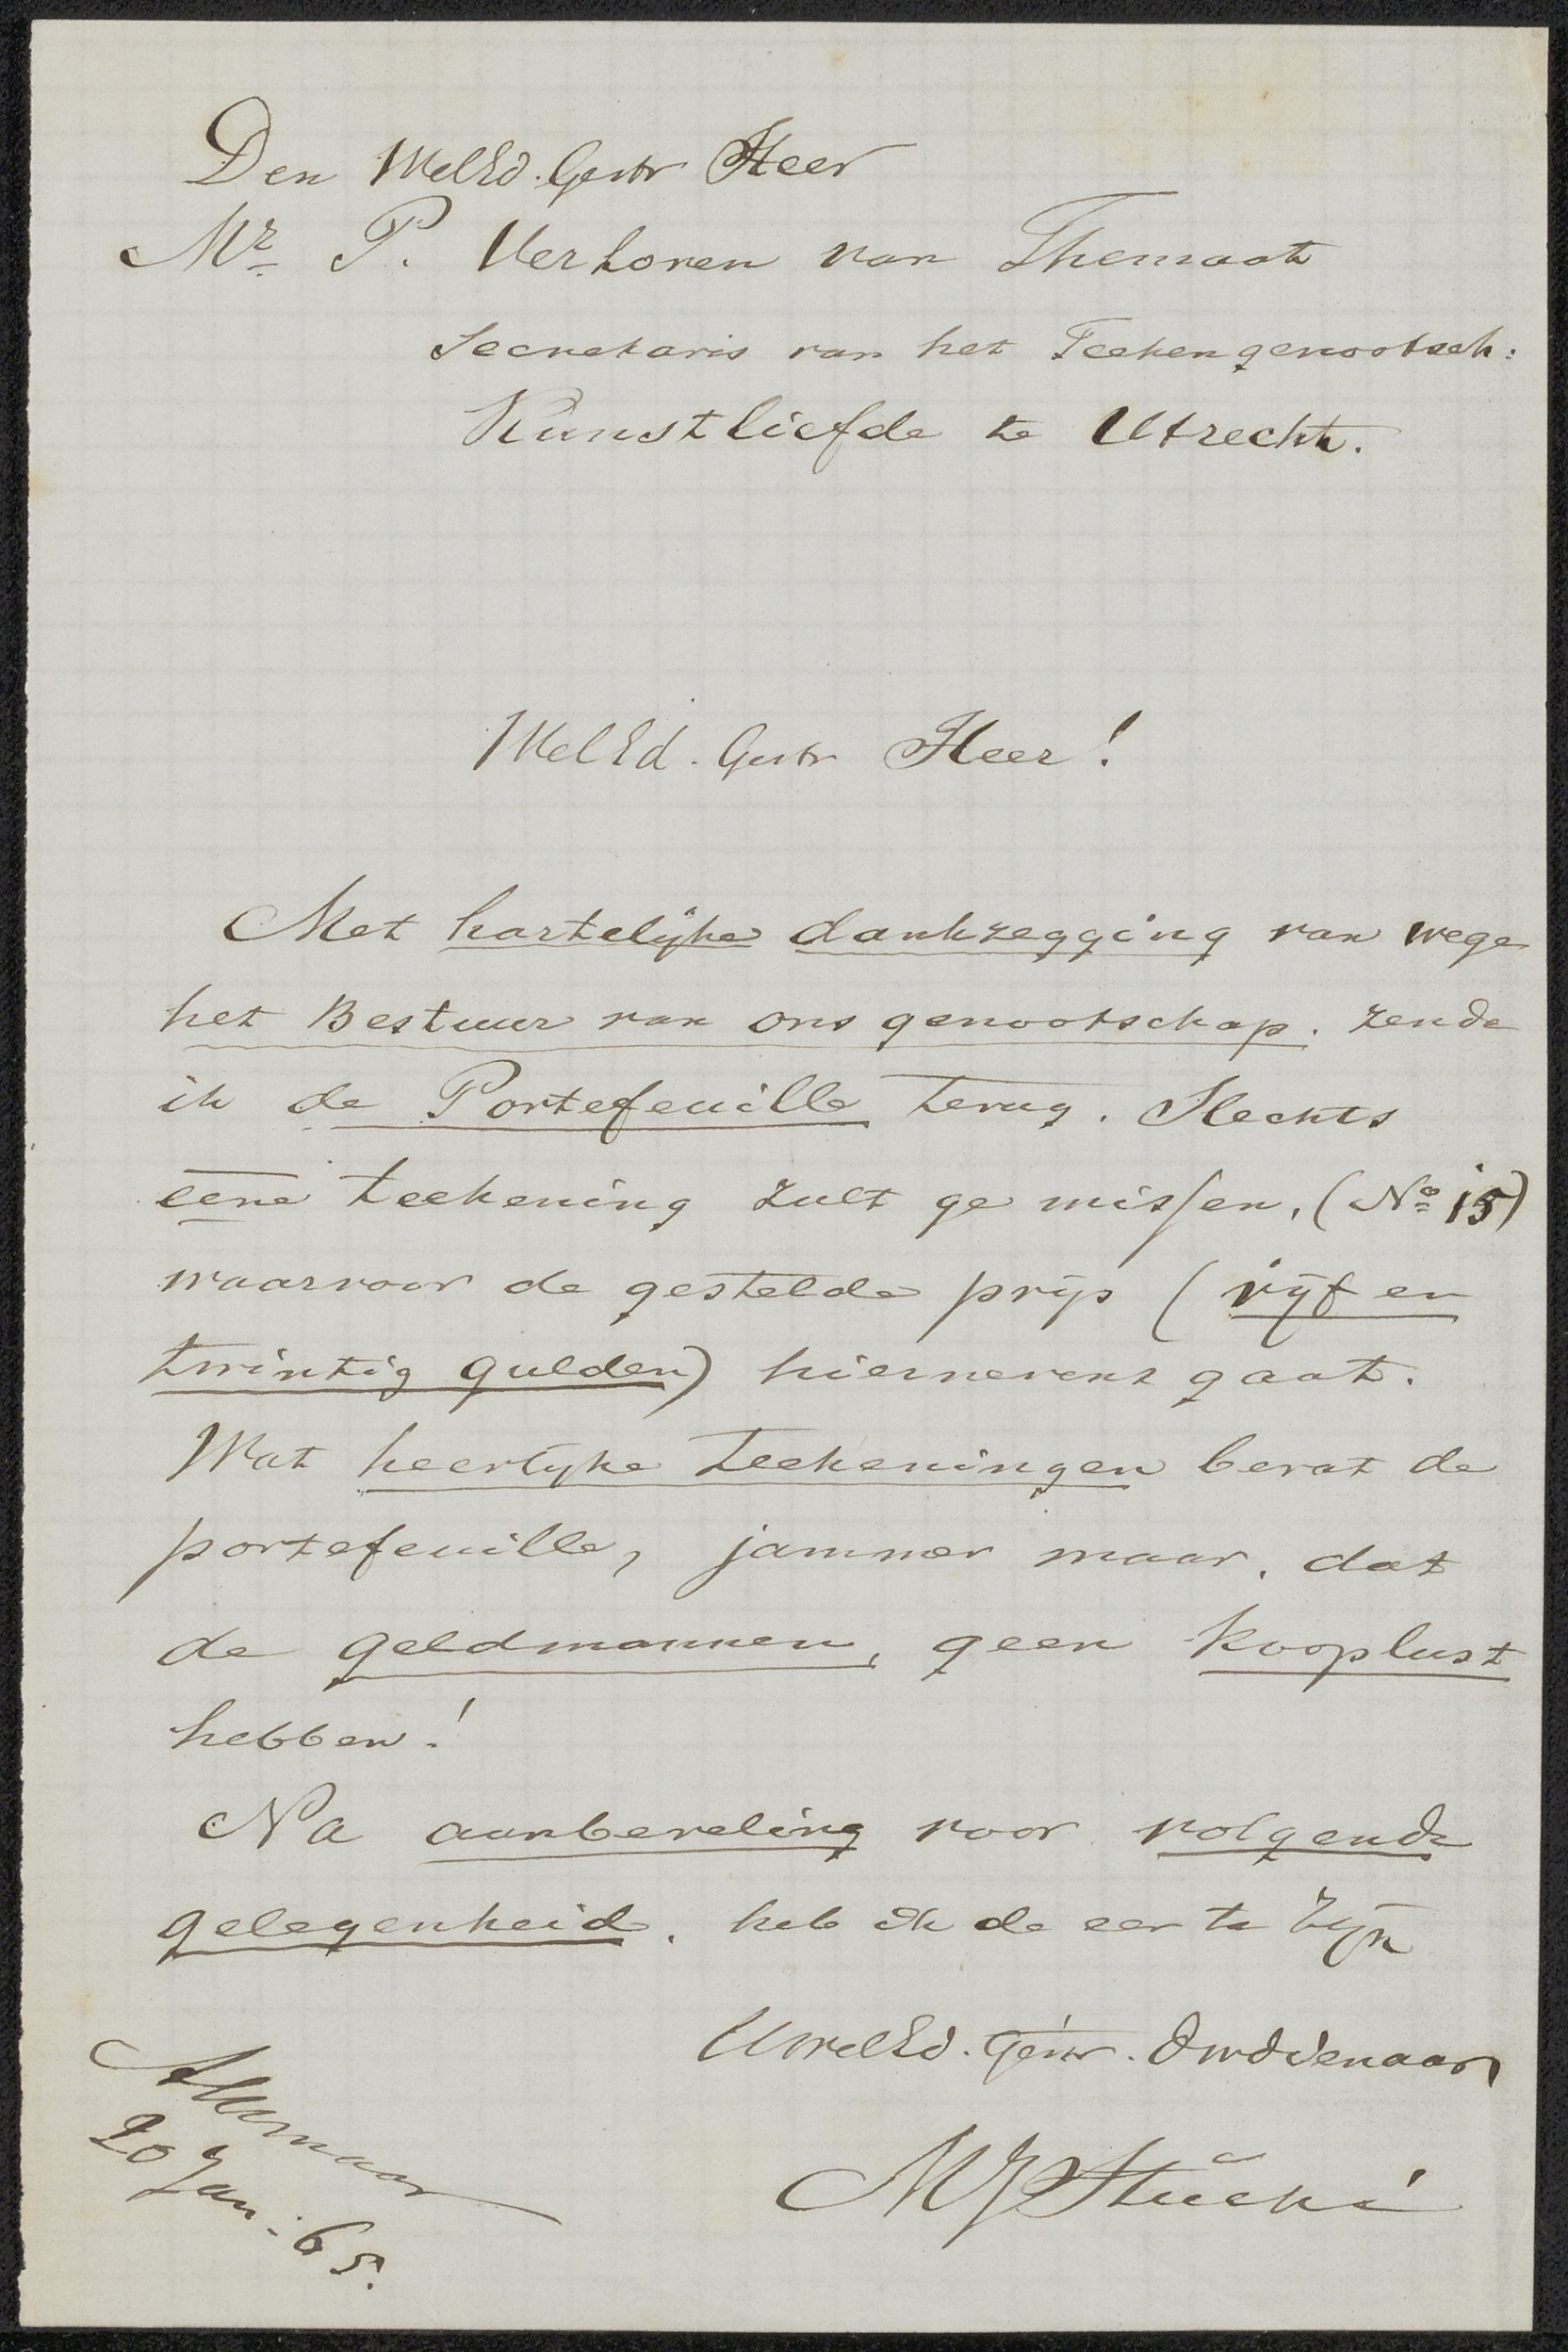 Den WelEd. Gestr Heer
Mr. P. Verloren van Themaat
Secretaris van het Teekengenootsch:
Kunstliefde te Utrecht.
WelEd. Gestr Heer!
Met hartelijke dankzegging van wege
het Bestuur van ons genootschap. zende
ik de Portefeuille terug. Slechts
eene teekening zult ge missen, (No 15)
waarvoor de gestelde prijs (vijf en
twintig gulden) hiernevens gaat.
Wat heerlijke teekeningen bevat de
portefeuille, jammer maar, dat
de geldmannen, geen kooplust
hebben!
Na aanbeveling voor volgende
gelegenheid, heb ik de eer te zijn
UwelEd. Gestr. Dwdienaar
Alkmaar
20 Jan: 65.
MJ Stucki